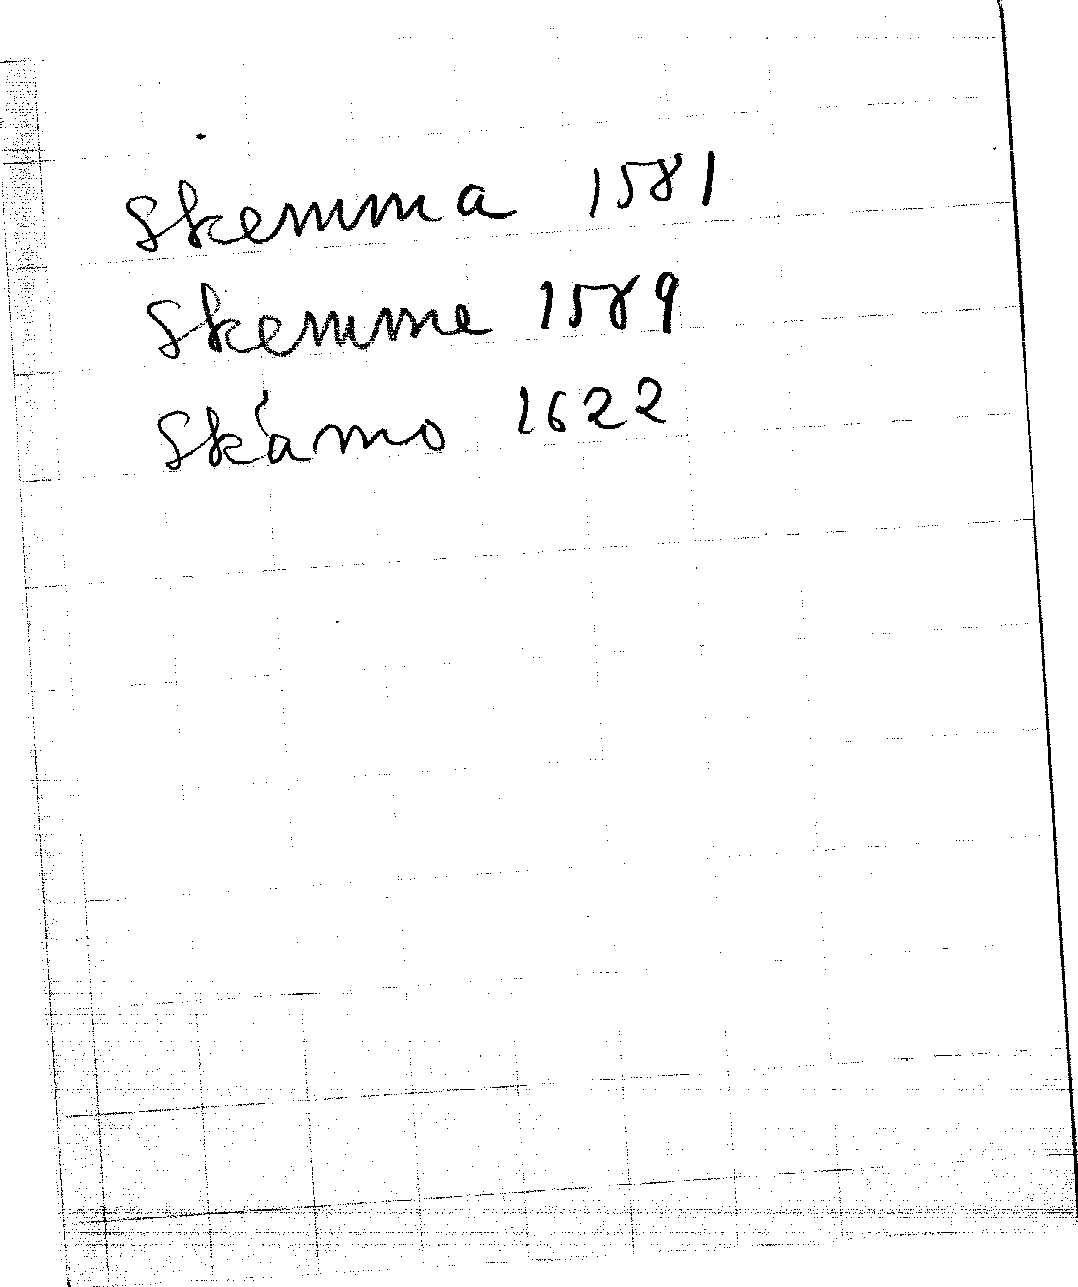 Skemma 1581
Skemme 1589
Skámo 1622